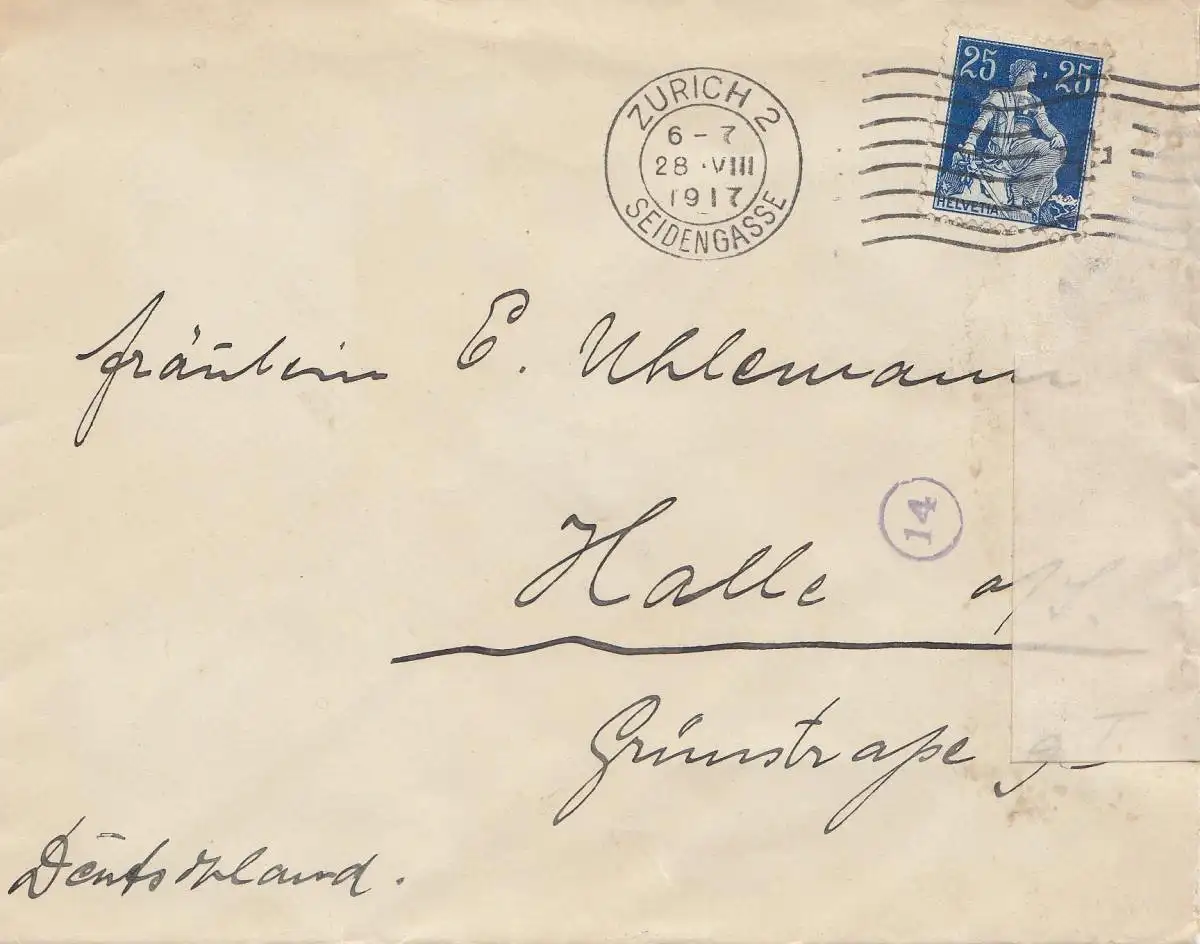 ZURICH 2
6-7
28.VIII
1917
SEIDENGASSE
25 25
HELVETIA
Fräulein E. Uhlemann
14
Halle a/
Grünstraße
Deutschland.